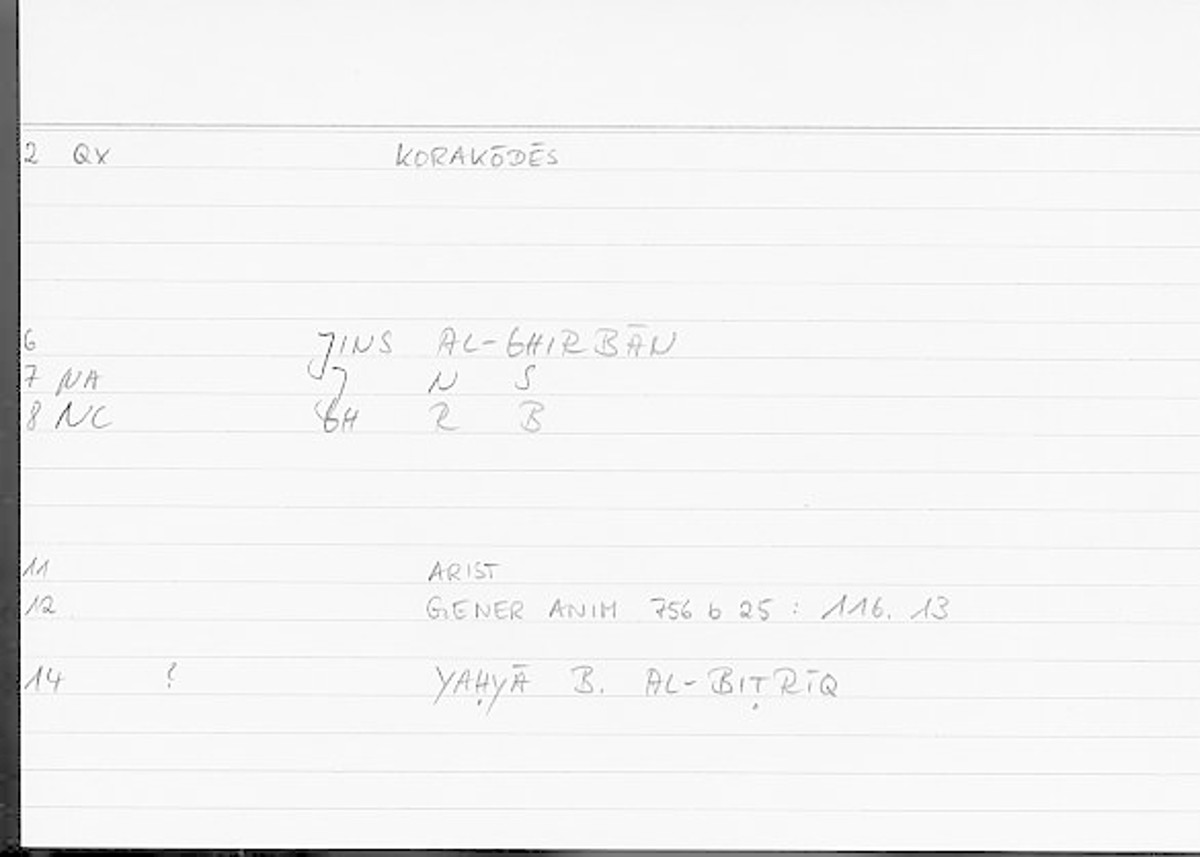 2 QX KORAKŌDĒS
6 JINS AL-GHIRBĀN
7 NA J N S
8 NC GH R B
11 ARIST
12 GENER ANIM 756 b 25 : 116. 13
14 ? YAḤYĀ B. AL-BIṬRĪQ